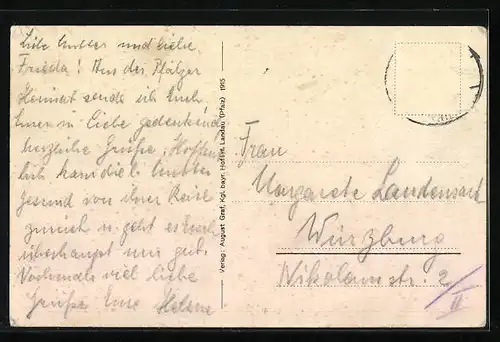 Liebe Mutter und liebe
Frieda! Aus der Pfälzer
Heimat sende ich Euch,
Ihnen in Liebe gedenkend
herzliche Grüße. Hoffent-
lich kam die l. Mutter
gesund von ihrer Reise
zurück u. geht es Euch
überhaupt nur gut.
Nochmals viel liebe
Grüße Eure Helene
Verlag: August Graf, Kgl. bayr. Hoflief. Landau (Pfalz) 1915
Frau
Margarete Landensack
Würzburg
Nikolausstr. 2/
II